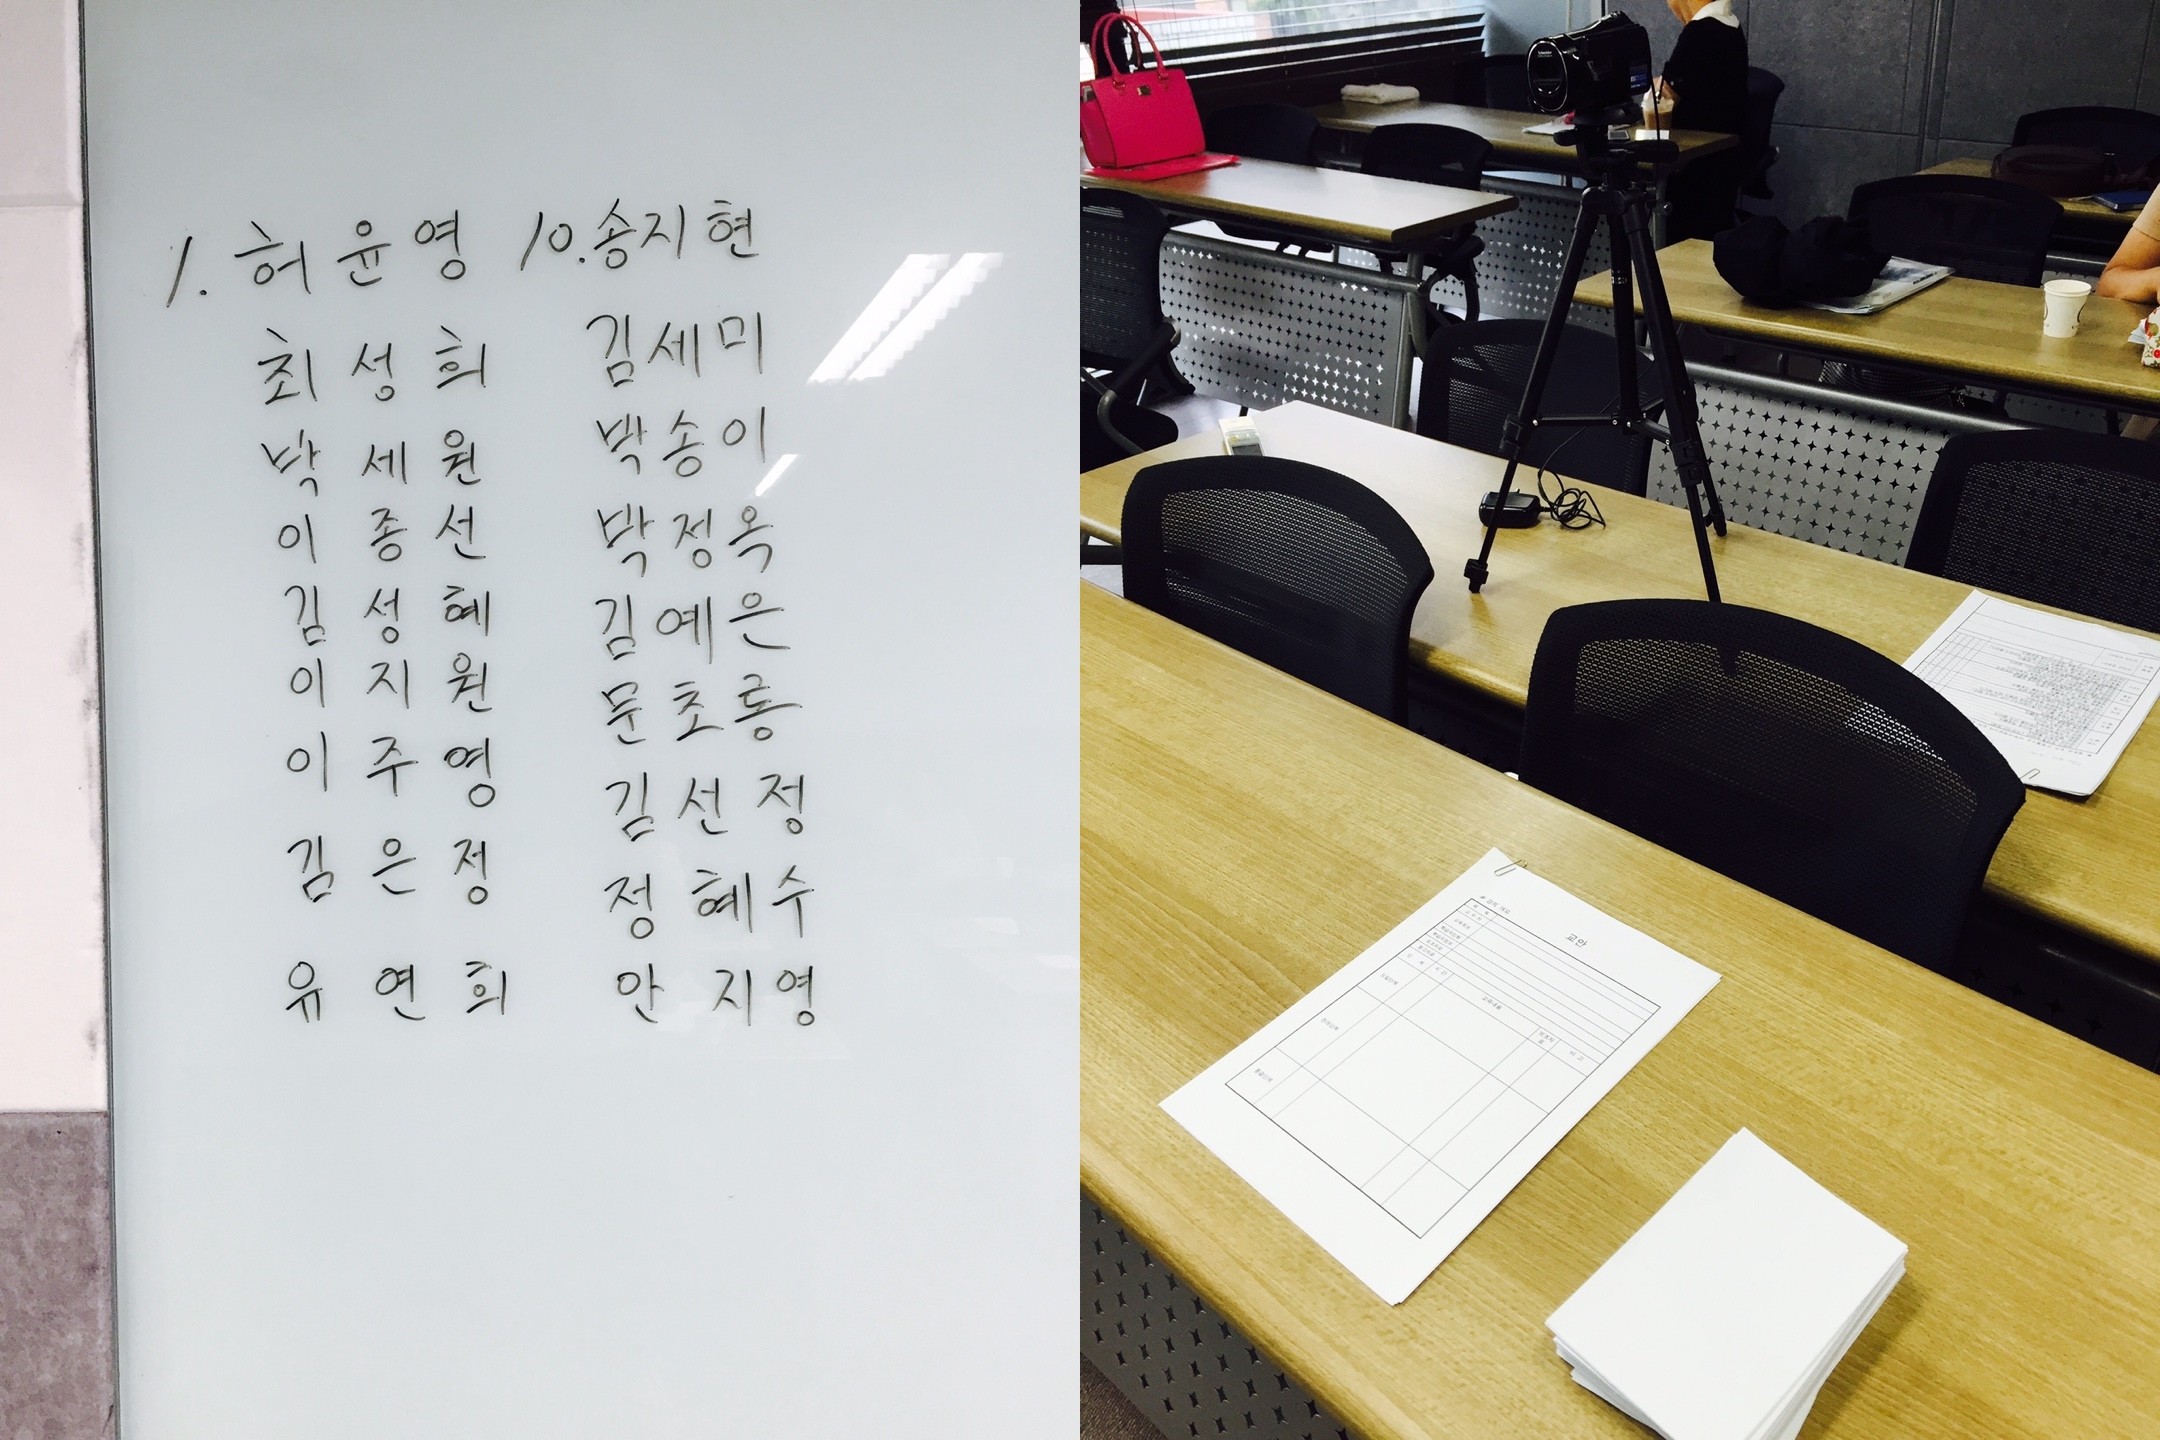 1. 허윤영
최성희
박세원
이종선
김성혜
이지원
이주영
김은정
유연희
10. 송지현
김세미
박송이
박정옥
김예은
문초롱
김선정
정혜수
안지영
교안
교육내용
비고